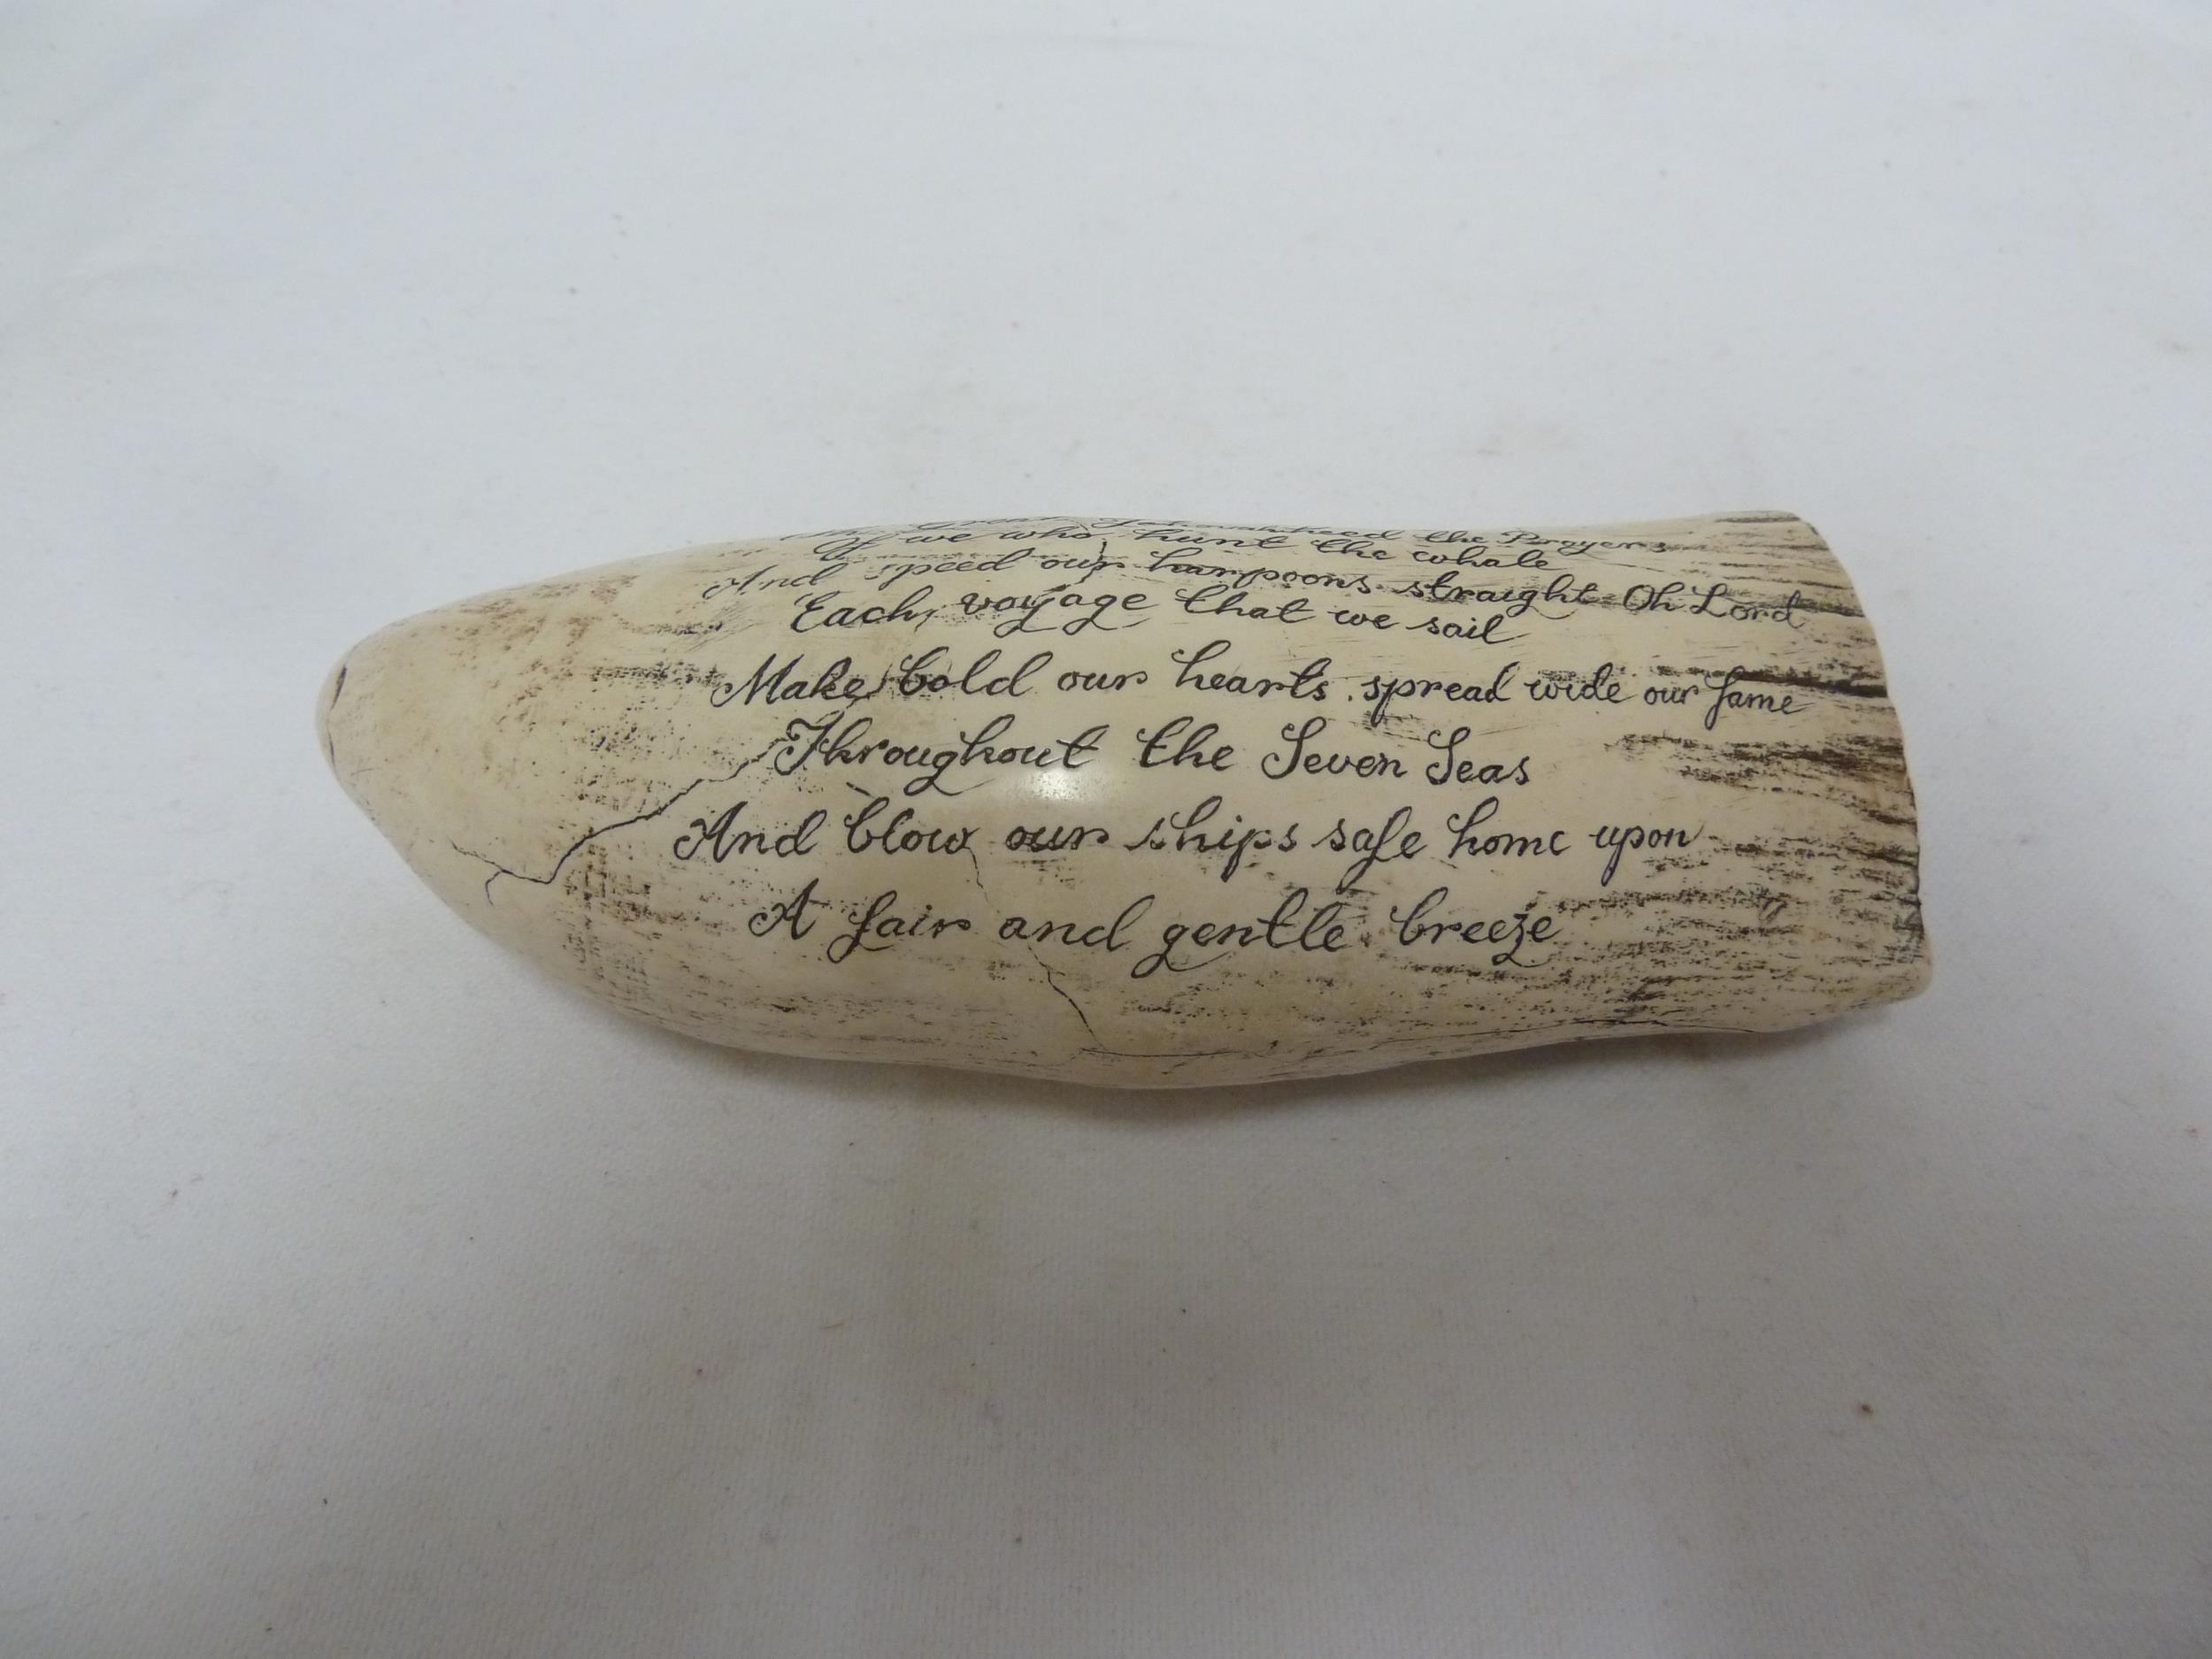 Great Jehovah heed the Prayers
Of we who hunt the whale
And speed our harpoons straight Oh Lord
Each voyage that we sail
Make bold our hearts spread wide our fame
Throughout the Seven Seas
And blow our ships safe home upon
A fair and gentle breeze